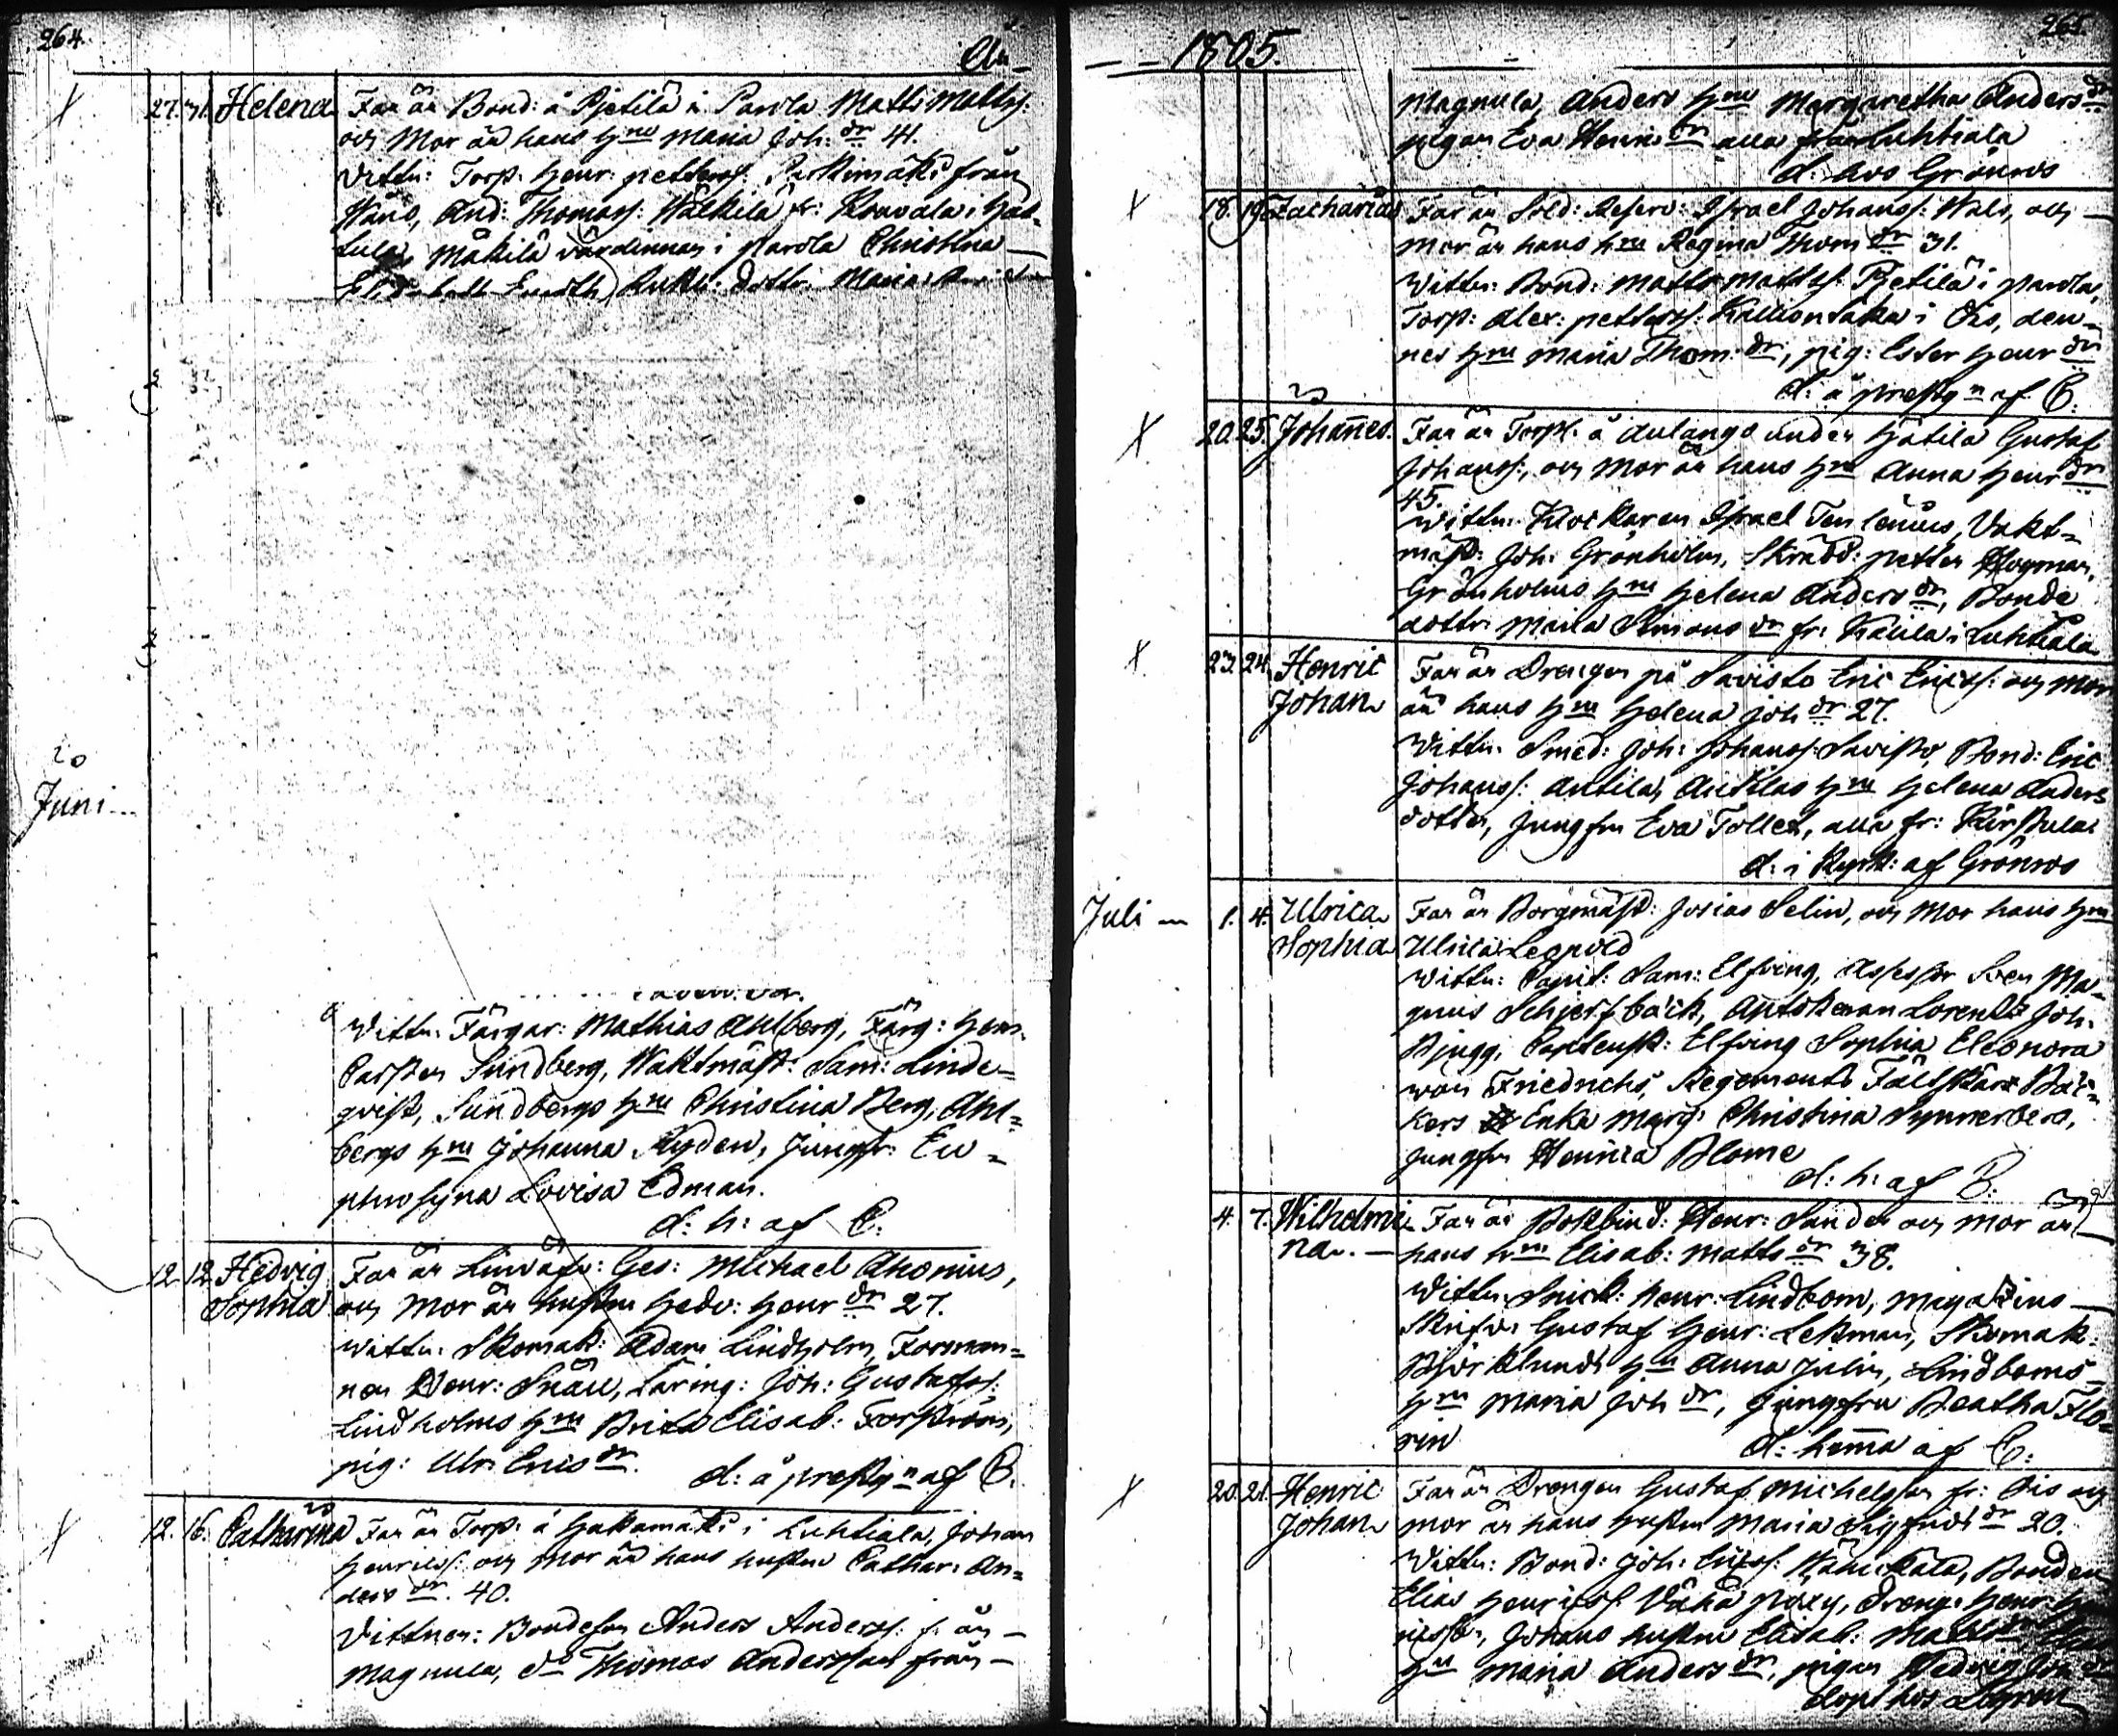 264.
An-
27. 31. Helena Far är Bond: å Pjetilä i Parola Matts Mattss:
och Mor är hans h:nu Maria Joh: dr 41.
Vittn: Torp. Henr: Petterss: Parkimäki från
And: Thomass: Walkila fr: i Hat-
tula, Mäkilä värdinnan i Parola Christina
dottr. Maria
Juni
Vittn: Färgar: Mathias Ahlberg, Färg: Henr.
Carsten Sundberg, Waktmäst: Sam: Linde-
qvist, Sundbergs h:nu Christina Berg, Ahl-
bergs h:nu Johanna Ryden, Jungfr: Eu-
phrosyna Lovisa Edman.
d: h: af C:
12. 12. Hedvig Far är Linväfv: Ges: Michael Ahonius,
Sophia och Mor är hustru Hedv: Henr dr 27.
Vittn: Skomak: Adam Lindholm, Forman-
nen Henr: Snäll, Läring: Joh: Gustafss:
Lindholms h:nu Brita Elisab: Forström,
pig: Ulr: Erics dr. d: å prestg:n af B.
12. 16. Catharina Far är Torp: å Hakamäki i Luhtiala, Johan
Henricss: och Mor är hans hustru Cathar: An-
ders dr. 40.
Vittnen: Bondeson Anders Anderss: från
Magnula, do Thomas Andersson från
1805.
265.
Magnula, Anders h:nu Margaretha Anders dr
pigan Eva Henrics dr alla från Luhtiala
d: hos Grönros
18. 19. Zacharias Far är Sold: Reserv: Israel Johanss: Wals, och
Mor är hans h:nu Regina Thom dr 31.
Vittn: Bond: Matts Mattss: Pjetilä i Parola,
Torp: Alex: Petterss: i Ois, den-
nes h:nu Maria Thom: dr, pig: Ester Henr dr
d: å prestg:n af C:
20. 25. Johannes. Far är Torp: å Aulango under Hätilä Gustaf
Johanss:, och Mor är hans h:nu Anna Henr dr
45.
Vittn: Klockaren Israel Tenlenius, Vakt-
mäst: Joh: Grönholm, Skrädd: Petter Hogman,
Grönholms h:nu Helena Anders dr, Bonde
dottr: Maria Simons dr fr: i Luhtiala
23. 24. Henric Far är Drengen på Savisto Eric Ericss: och Mor
Johan är hans h:nu Helena Joh dr 27.
Vittn: Smed: Joh: Johanss: Savisto, Bond: Eric
Johanss: Antila, Anttilas h:nu Helena Anders
dotter, Jungfru Eva Tollet, alla fr: Kirstula
d: i Kyrk: af Grönros
Juli 1. 4. Ulrica Far är Borgmäst: Josias Selin, och Mor hans h:nu
Sophia Ulrica Leopold
Vittn: Capit: Sam: Elfving, Assessor Sven Ma-
gnus Schjerfbäck, Apothekaren Lorentz Joh.
Bjugg, Elfving Sophia Eleonora
von Friedrichs, Regements Fältskärs
Enka Marg: Christina Synnerberg,
Jungfru Henrica Blome
d: h: af B:
4. 7. Wilhelmi- Far är Bokbind: Henr: Sander och Mor är
na. hans h:nu Elisab: Matts dr 38.
Vittn: Snick: Henr: Lindbom, Magazins
Skrifv: Gustaf Henr: Lekman, Skomak:
Björklunds h:nu Anna Julin, Lindboms
h:nu Maria Joh dr, Jungfru Beatha Flo-
rin d: hemma af C:
20. 21. Henric Far är Drengen Gustaf Michelsson fr: Ois och
Johan Mor är hans hustru Maria Sigfrids dr 20.
Vittn: Bond: Joh: Ericss: Bonden
Elias Henricss: Dreng: Henr:
Johans hustru Elisab:
h:nu Maria Anders dr, pigan Hedvig Joh dr
döpt hos